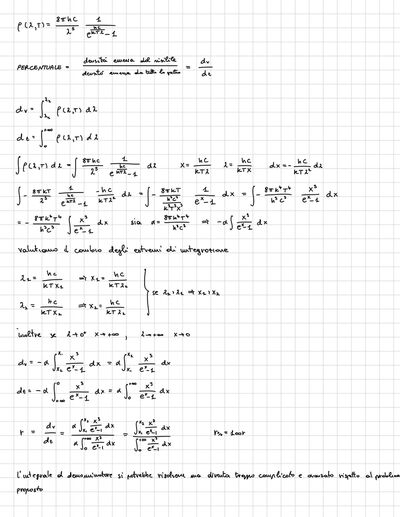 ρ(λ,T) = 8πhc/λ⁵ 1/(e^(hc/kTλ) - 1)
PERCENTUALE = densità emessa dal visibile / densità emessa da tutto lo spettro = dv/dt
dv = ∫ ρ(λ,T) dλ
dt = ∫₀^+∞ ρ(λ,T) dλ
∫ ρ(λ,T) dλ = ∫ 8πhc/λ⁵ 1/(e^(hc/kTλ) - 1) dλ x = hc/kTλ λ = hc/kTx dx = - hc/kTλ² dλ
∫ - 8πkT/λ³ 1/(e^(hc/kTλ) - 1) -hc/kTλ² dλ = ∫ - 8πkT/(h³c³/k³T³x³) 1/(eˣ - 1) dx = ∫ - 8πk⁴T⁴/h³c³ x³/(eˣ - 1) dx
= - 8πk⁴T⁴/h³c³ ∫ x³/(eˣ - 1) dx sia α = 8πk⁴T⁴/h³c³ ⇒ -α ∫ x³/(eˣ - 1) dx
valutiamo il cambio degli estremi di integrazione
λ₁ = hc/kTx₁ ⇒ x₁ = hc/kTλ₁
λ₂ = hc/kTx₂ ⇒ x₂ = hc/kTλ₂
se λ₂ > λ₁ ⇒ x₁ > x₂
inoltre se λ→0⁺ x→+∞ , λ→+∞ x→0
dv = -α ∫ x³/(eˣ - 1) dx = α ∫ x³/(eˣ - 1) dx
dt = -α ∫_+∞^0 x³/(eˣ - 1) dx = α ∫₀^+∞ x³/(eˣ - 1) dx
r = dv/dt = α ∫ x³/(eˣ - 1) dx / α ∫₀^+∞ x³/(eˣ - 1) dx = ∫ x³/(eˣ - 1) dx / ∫₀^+∞ x³/(eˣ - 1) dx r% = 100r
L'integrale al denominatore si potrebbe risolvere ma diventa troppo complicato e avanzato rispetto al problema
proposto